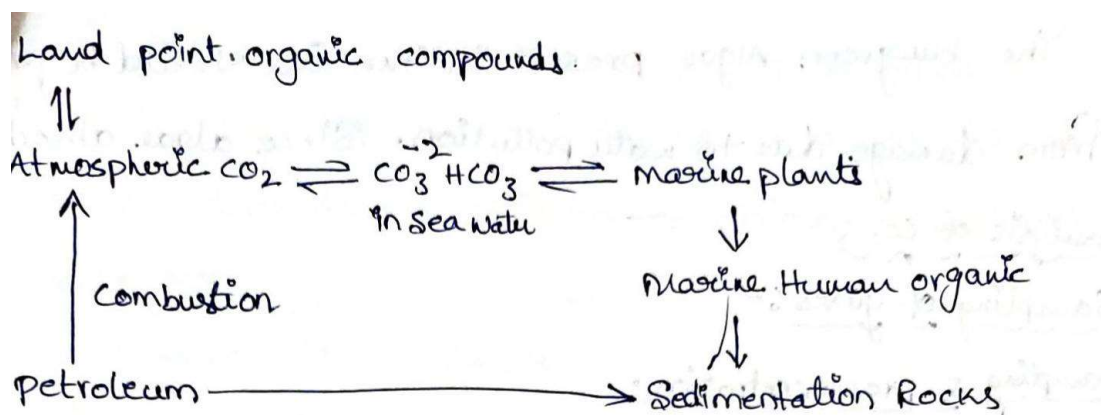 Land point. organic compounds.
⇅
Atmospheric CO₂ ⇌ CO₃⁻² HCO₃ ⇌ marine plants
in Sea watu
↓
Marine Human organic
Combustion
↑ ↓
petroleum → Sedimentation Rocks